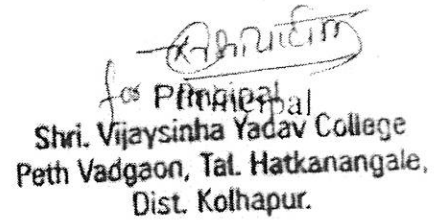 for Principal
Shri. Vijaysinha Yadav College
Peth Vadgaon, Tal. Hatkanangale,
Dist. Kolhapur.